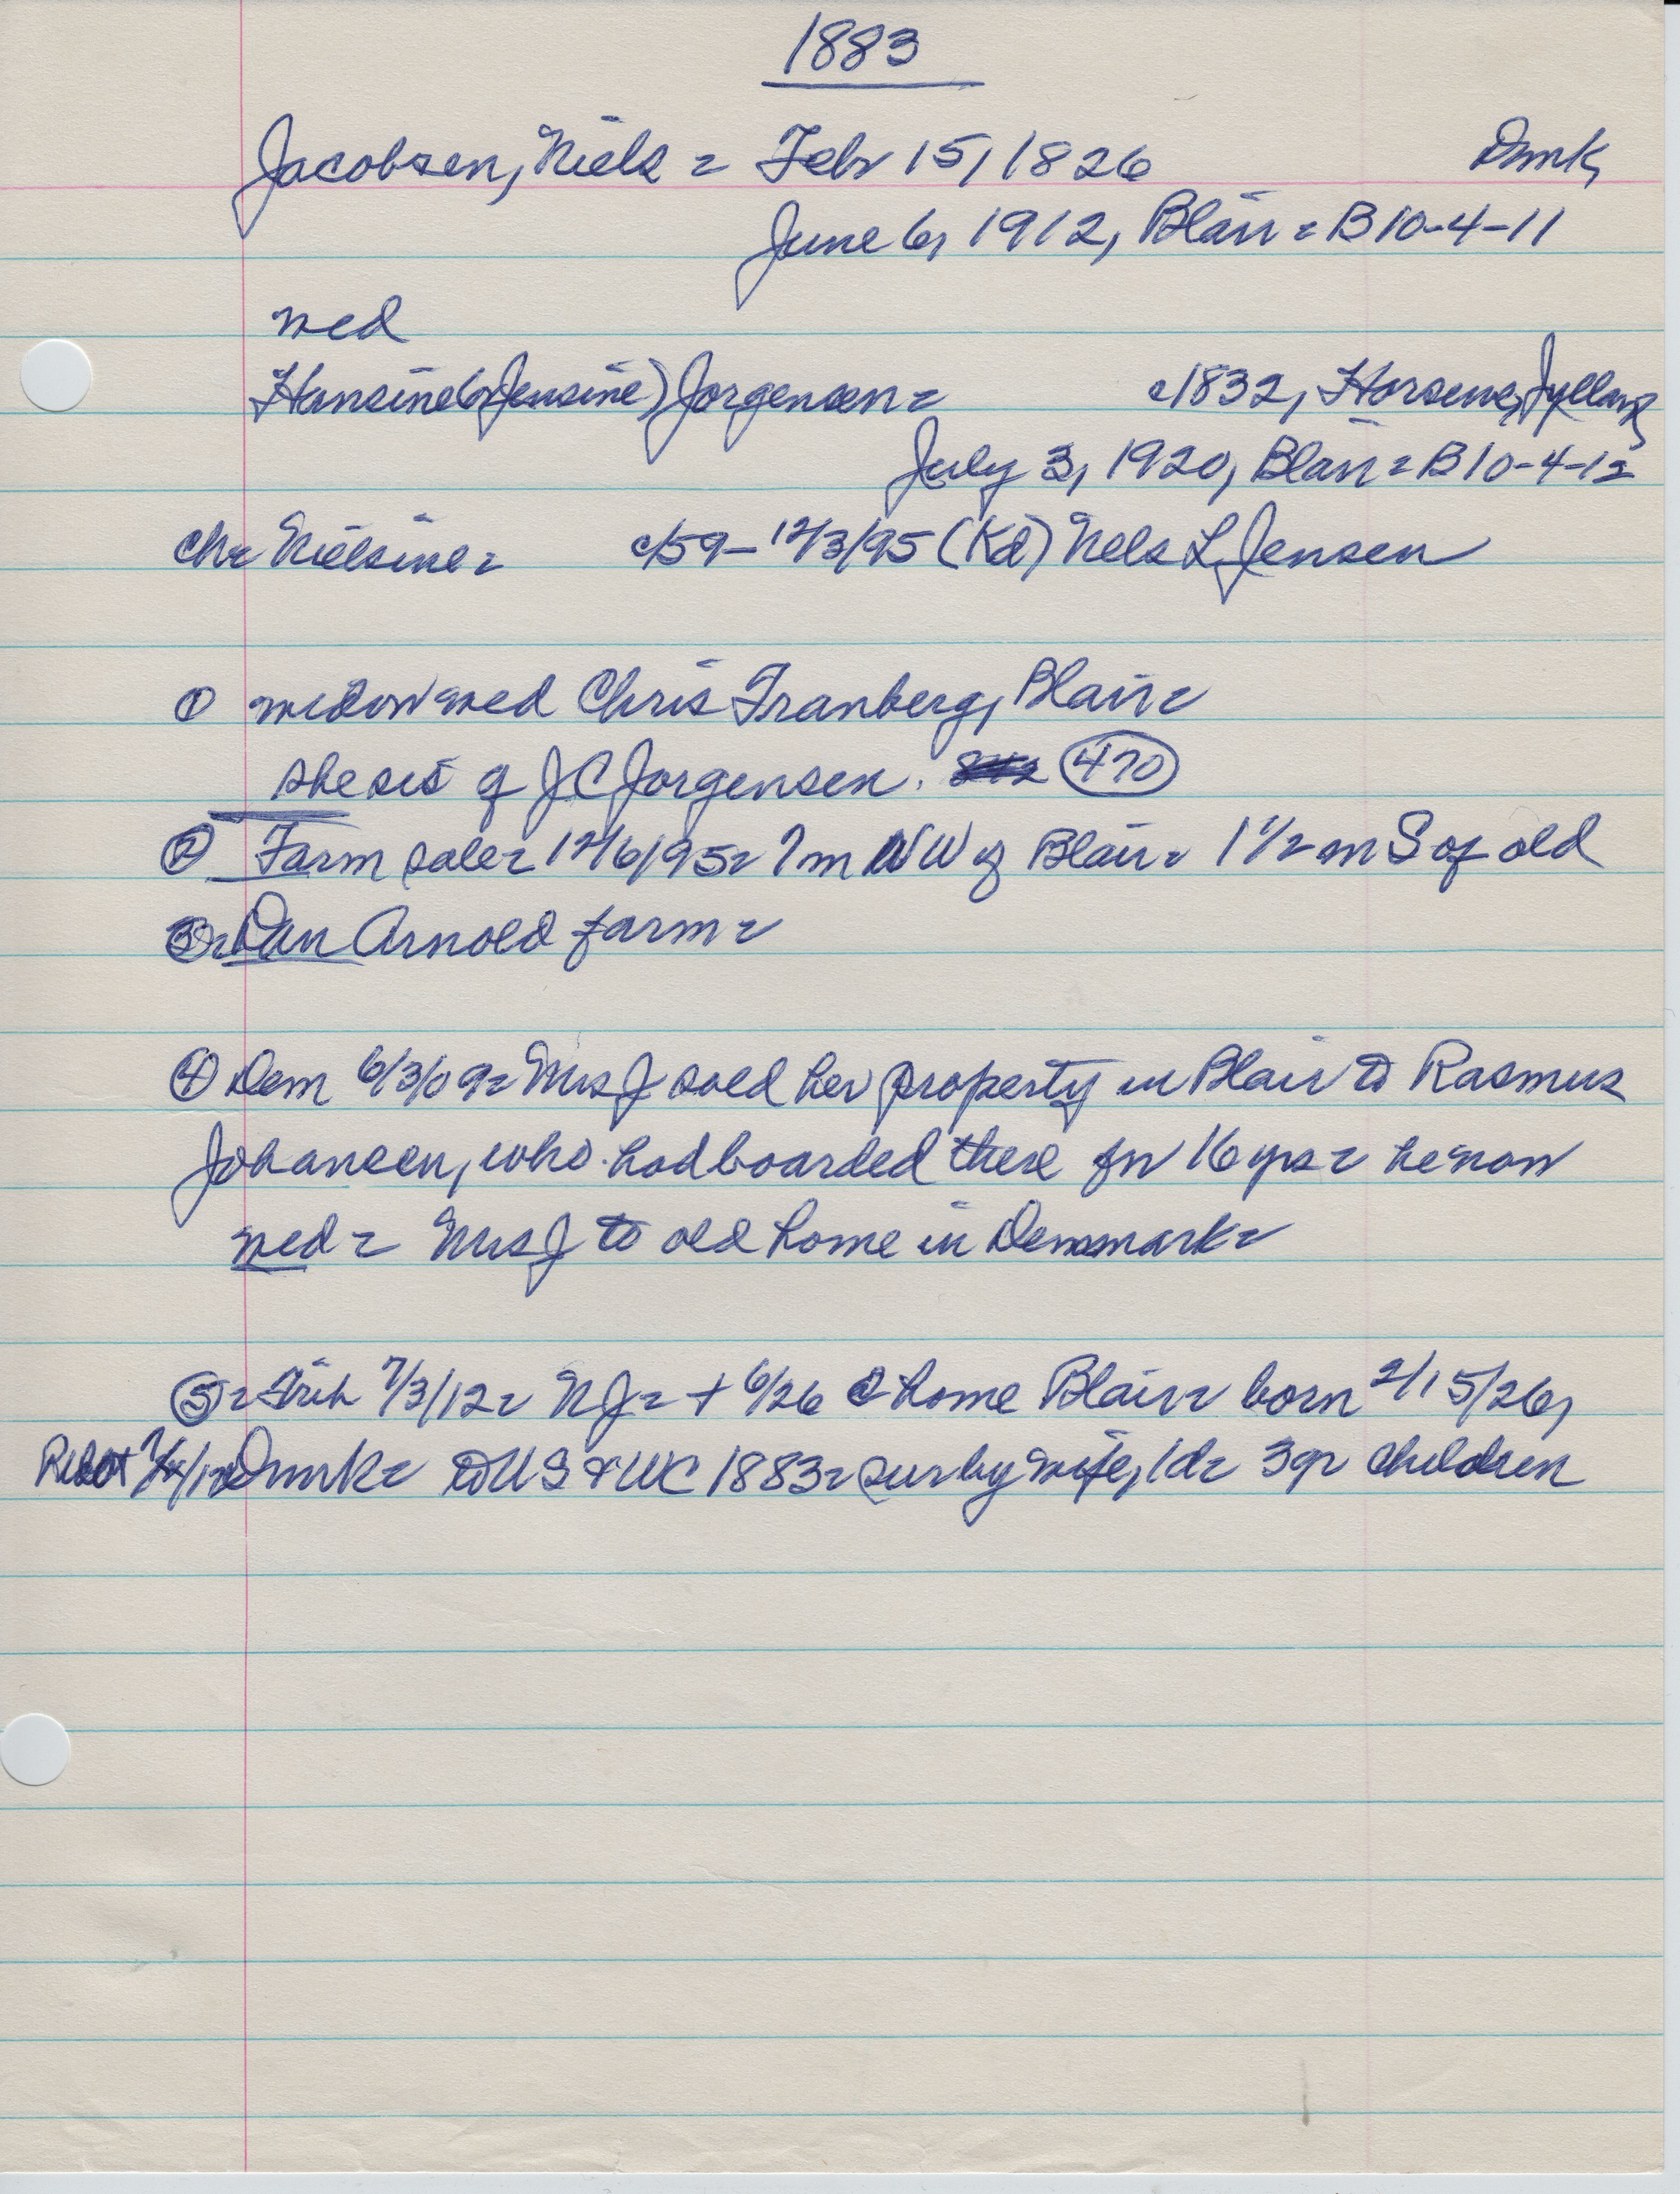 1883
Jacobsen, Niels = Febr 15, 1826 Dmk,
June 6, 1912, Blair = B10-4-11
wed
Hansine (or Jensine) Jorgensen = c1832, Horsens, Jylland,
July 3, 1920, Blair = B10-4-12
ch = Nielsine = c/59 - 12/3/95 (Kd) Nels L Jensen
① widow wed Chris Tranberg, Blair =
she sis of J C Jorgensen. (470)
② Farm sale = 12/6/95 = 7m NW of Blair = 1 1/2 m S of old
③ = Dan Arnold farm =
④ Dem 6/3/09 = Mrs J sold her property in Blair to Rasmus
Johansen, who had boarded there for 16 yrs = he now
wed = Mrs J to old home in Denmark =
⑤ = Trib 7/3/12 = N J = + 6/26 @ home Blair = born 2/15/26,
Dmrk = to US & WC 1883 = sur by wife, 1d = 3 gr children